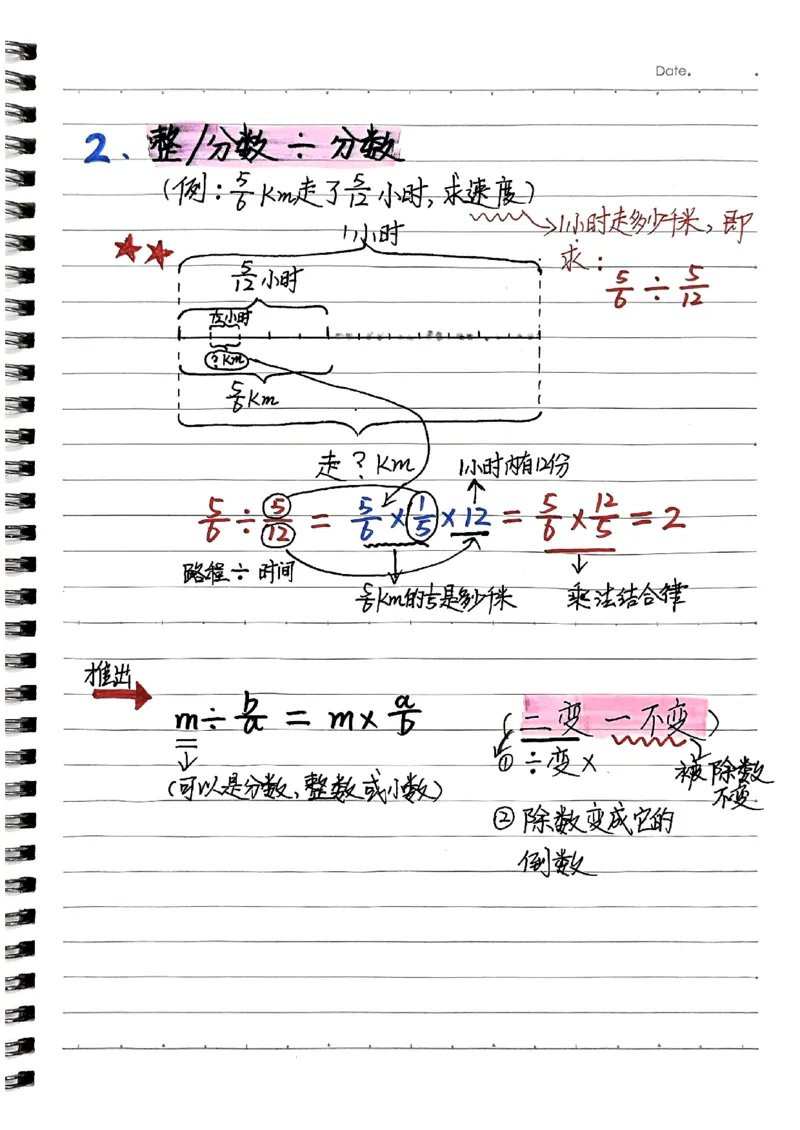 Date.
2. 整/分数 ÷ 分数
(例: 5/6 Km走了 5/12 小时, 求速度)
1小时走多少千米, 即
求: 5/6 ÷ 5/12
1小时
5/12 小时
1/12小时
? Km
5/6 Km
走 ? Km
1小时内有12份
5/6 ÷ 5/12 = 5/6 × 1/5 × 12 = 5/6 × 12/5 = 2
路程 ÷ 时间
5/6 Km的1/5是多少千米
乘法结合律
推出
m ÷ b/a = m × a/b
(二变 一不变)
(可以是分数, 整数或小数)
① ÷变×
被除数
不变
② 除数变成它的
倒数